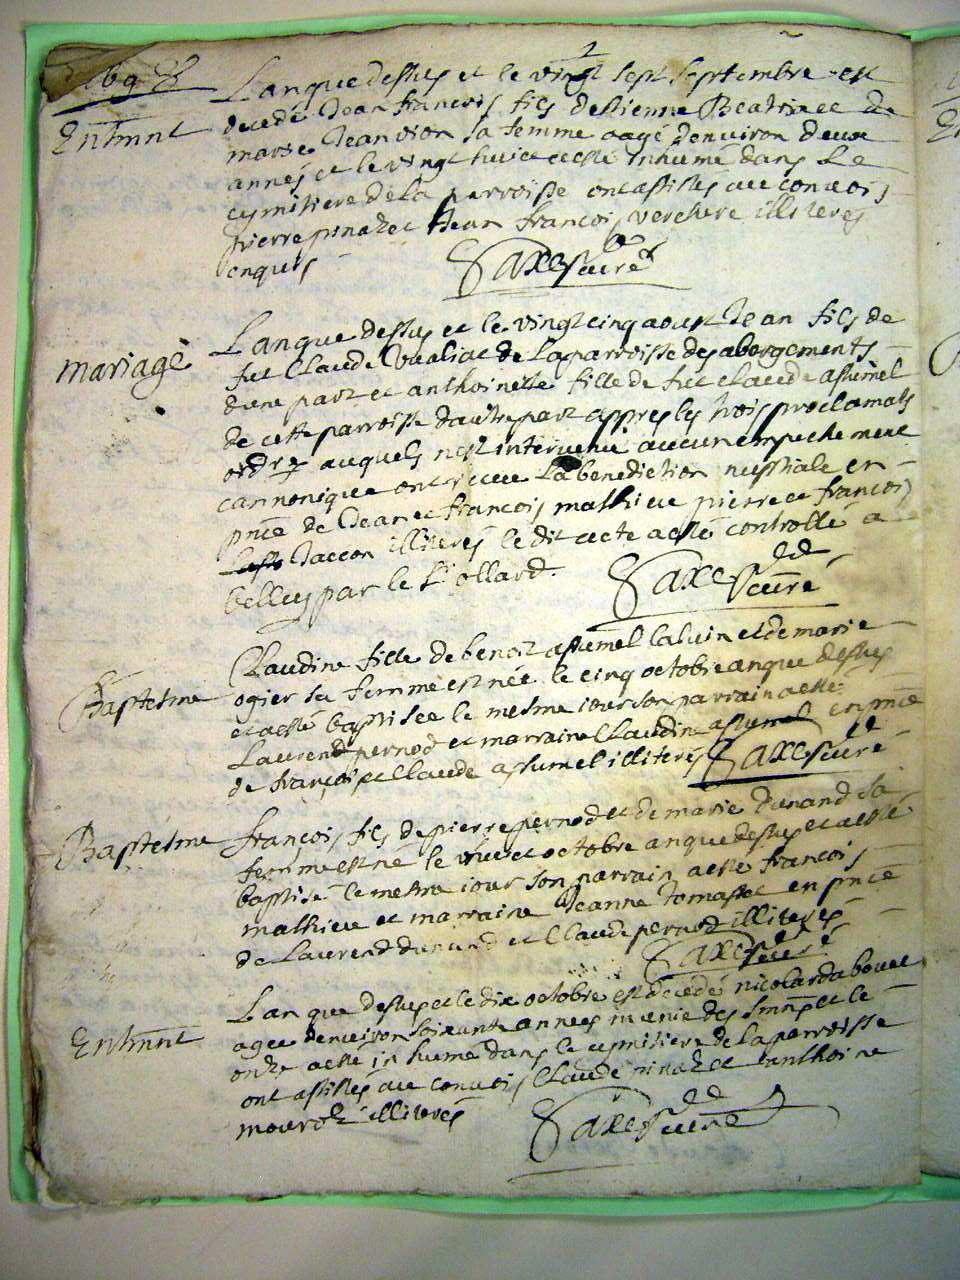 169
Lan que dessus et le vingt sept septembre est
Enthmnt
decedé Jean francois fils destienne Beatrix et de
marie Jeandion sa femme aagé denviron deux
annés et le vingt huict a esté inhumé dans le
cymitiere de la parroisse ont assistés au convois
pierre pinaz et Jean francois verchere illiteres
enquis
Saxe curé
mariage
Lan que dessus et le vingt cinq aoust Jean fils de
fut Claude de la parroisse des abergements
dune part et anthoinette fille de fut claude assumel
de cette parroisse dautre part appres les trois proclamats
ordres auquels nest intervenu aucun empechement
cannonique ont receu La benediction nuptiale en
pnce de Jean et francois mathieu pierre et francois
Jaccon illiteres le dit acte a esté controllé a
belley par le Sr ollard
Saxe curé
Baptesme
Claudine fille de benoit assumel Caluin et de marie
ogier sa femme est née le cinq octobre an que dessus
et a esté baptisee le mesme iour son parrain a esté
Laurend pernod et marraine Claudine assumel en pnce
de francois et Claude assumel illiteres Saxe curé
Baptesme
francois fils de pierre pernod et de marie Dunand sa
femme est né le octobre an que dessus et a esté
baptisé le mesme iour son parrain a esté francois
mathieu et marraine Jeanne tomasset en pnce
de Laurend dunand et Claude pernod illiteres
Saxe curé
Enthmnt
Lan que dessus et le dix octobre est decedé nicolarda bouet
agee denviron soixante annees munie des Smns et le
onze a esté inhumé dans le cymitiere de la parroisse
ont assistés au convois Claude pinaz et anthoine
mourez illiterés
Saxe curé